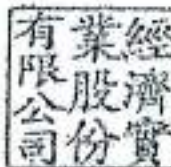 經濟實
業股份
有限公司